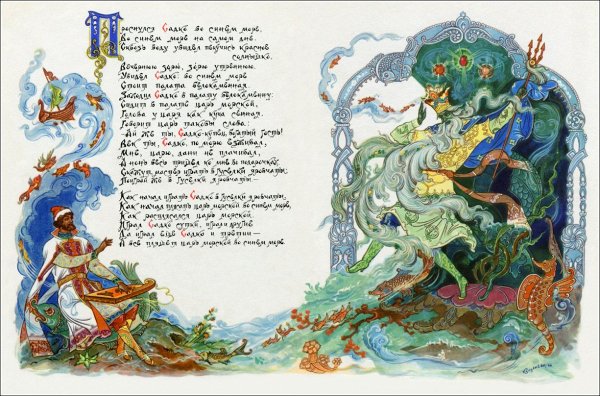 Проснулся Садко во синем море,
Во синем море на самом дне.
Сквозь воду увидел пекучись красное
солнышко,
Вечернюю зорю, зорю утреннюю.
Увидел Садко: во синем море
Стоит палата белокаменная.
Заходил Садко в палату белокаменну:
Сидит в палате царь морской,
Голова у царя как куча сенная.
Говорит царь таковы слова:
–Ай же ты, Садко-купец, богатый гость!
Век ты, Садко, по морю езживал,
Мне, царю, дани не плачивал,
А нонь весь пришел ко мне во подарочках.
Скажут, мастер играть в гусельки яровчаты;
Поиграй же в гусельки яровчаты.–
Как начал играть Садко в гусельки яровчаты,
Как начал плясать царь морской во синем море,
Как расплясался царь морской.
Играл Садко сутки, играл и другие
Да играл еще Садко и третии–
А все пляшет царь морской во синем море.